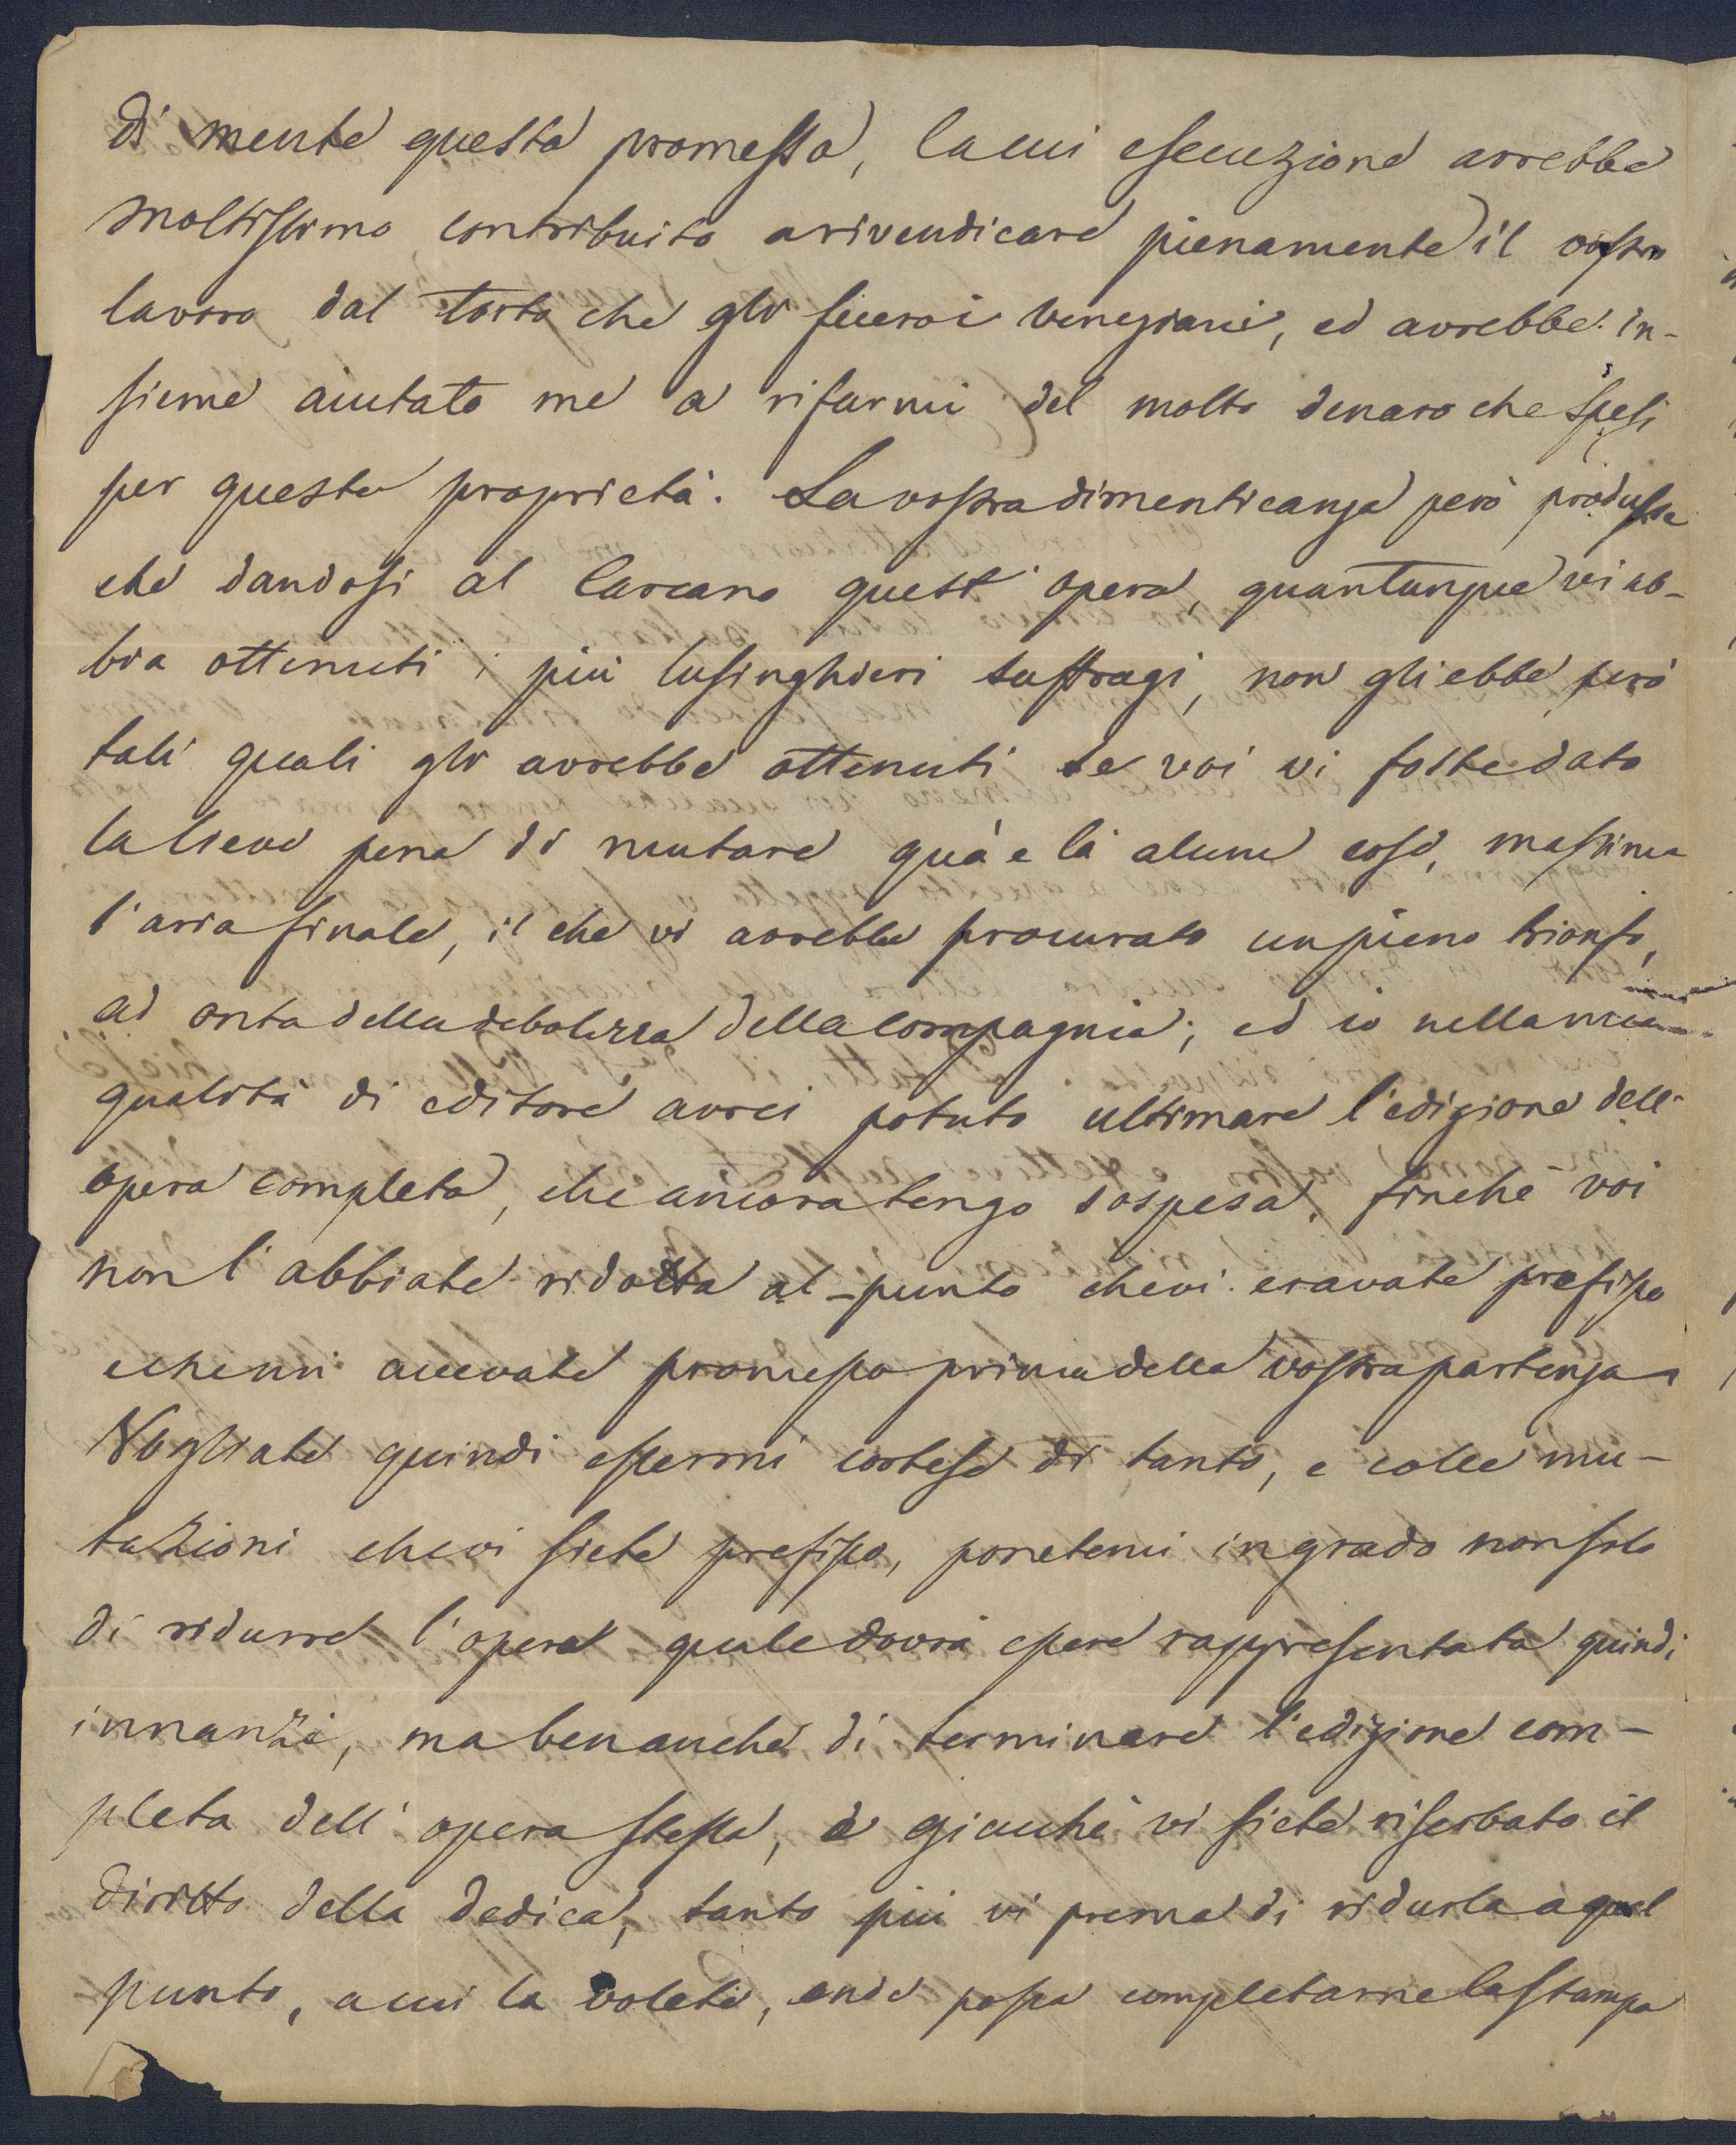 di mente questa promessa, la cui esecuzione avrebbe
moltissimo contribuito a rivendicare pienamente il vostro
lavoro dal torto che gli fecero i veneziani, ed avrebbe in-
sieme aiutato me a rifarmi del molto denaro che spesi
per questa proprietà. La vostra dimenticanza però produsse
che dandosi al Carcano quest'opera, quantunque vi ab-
bia ottenuti i più lusinghieri suffragi, non gli ebbe però
tali quali gli avrebbe ottenuti se voi vi foste dato
la lieve pena di mutare quà e là alcune cose, massime
l'aria finale, il che vi avrebbe procurato un pieno trionfo,
ad onta della debolezza della compagnia; ed io nella mia
qualità di editore avrei potuto ultimare l'edizione dell'
opera completa, che ancora tengo sospesa, finchè voi
non l'abbiate ridotta al punto che vi eravate prefisso
e che mi avevate promesso prima della vostra partenza
Vogliate quindi essermi cortese di tanto, e colle mu-
tazioni che vi siete prefisso, ponetemi in grado non solo
di ridurre l'opera quale dovrà essere rappresentata quindi
innanzi, ma ben anche di terminare l'edizione com-
pleta dell'opera stessa, e giacchè vi siete riserbato il
diritto della dedica, tanto più vi prema di ridurla a quel
punto, a cui la volete, onde possa completarne la stampa